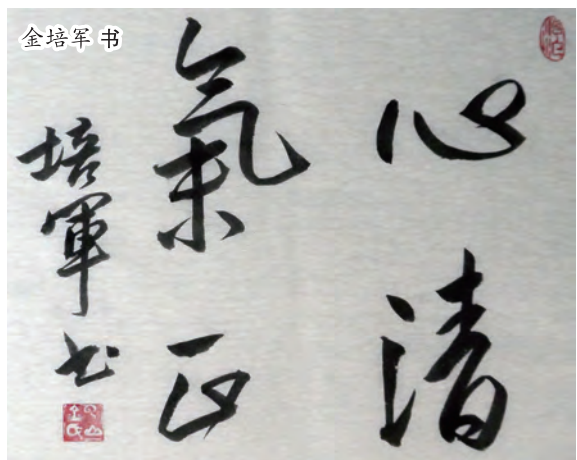 金培军 书
心清
氣正
培軍书